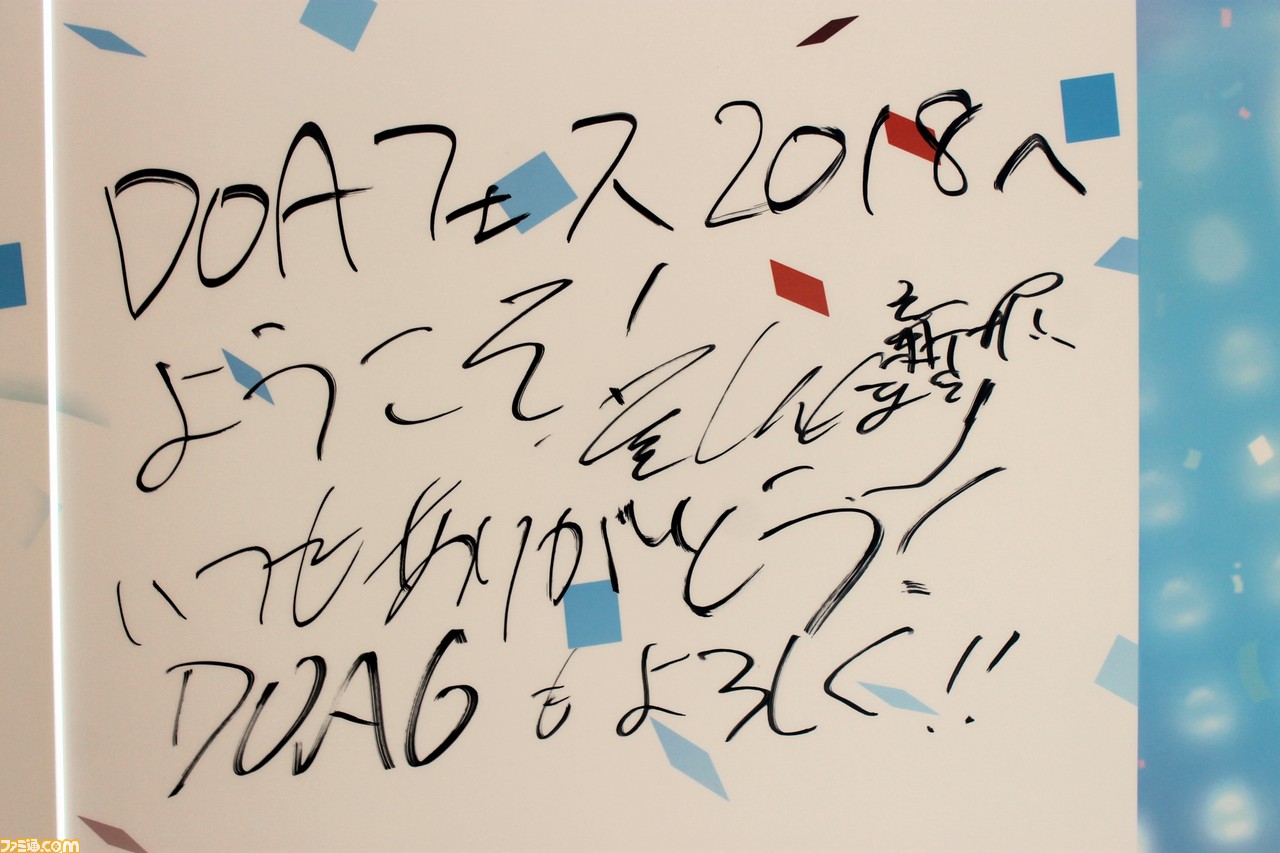 DOAフェス2018へ
ようこそ!
いつもありがとう!
DOA6もよろしく!!
ファミ通.com